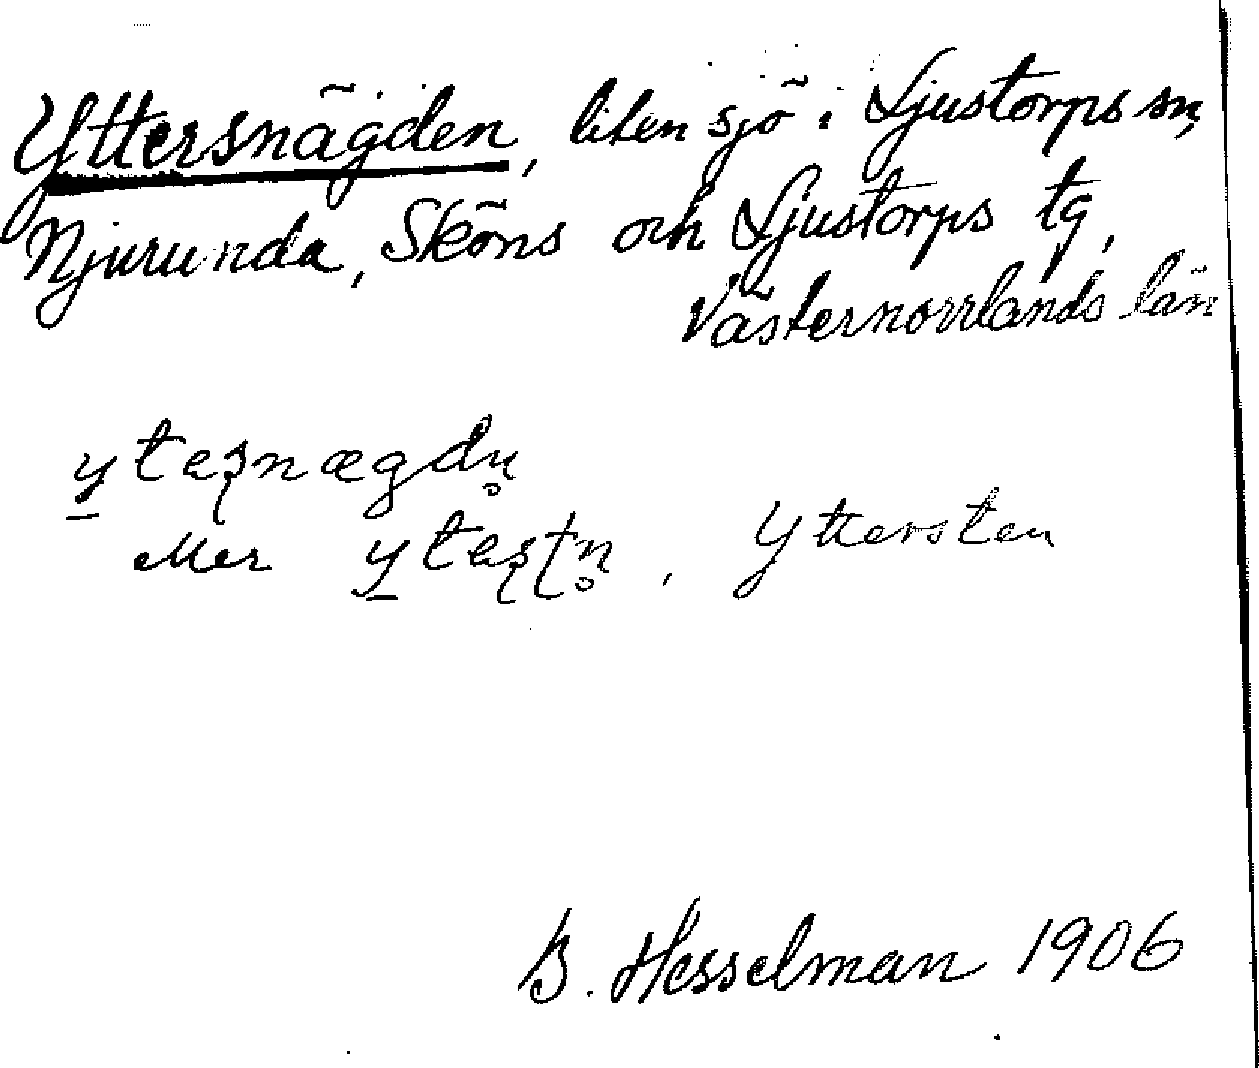 Yttersnägden, liten sjö i Ljustorps sn,
Njurunda, Sköns och Ljustorps tg,
Västernorrlands län
y̲teʂnægdn̥
eller y̲teʂʈn̥, Yttersten
B. Hesselman 1906